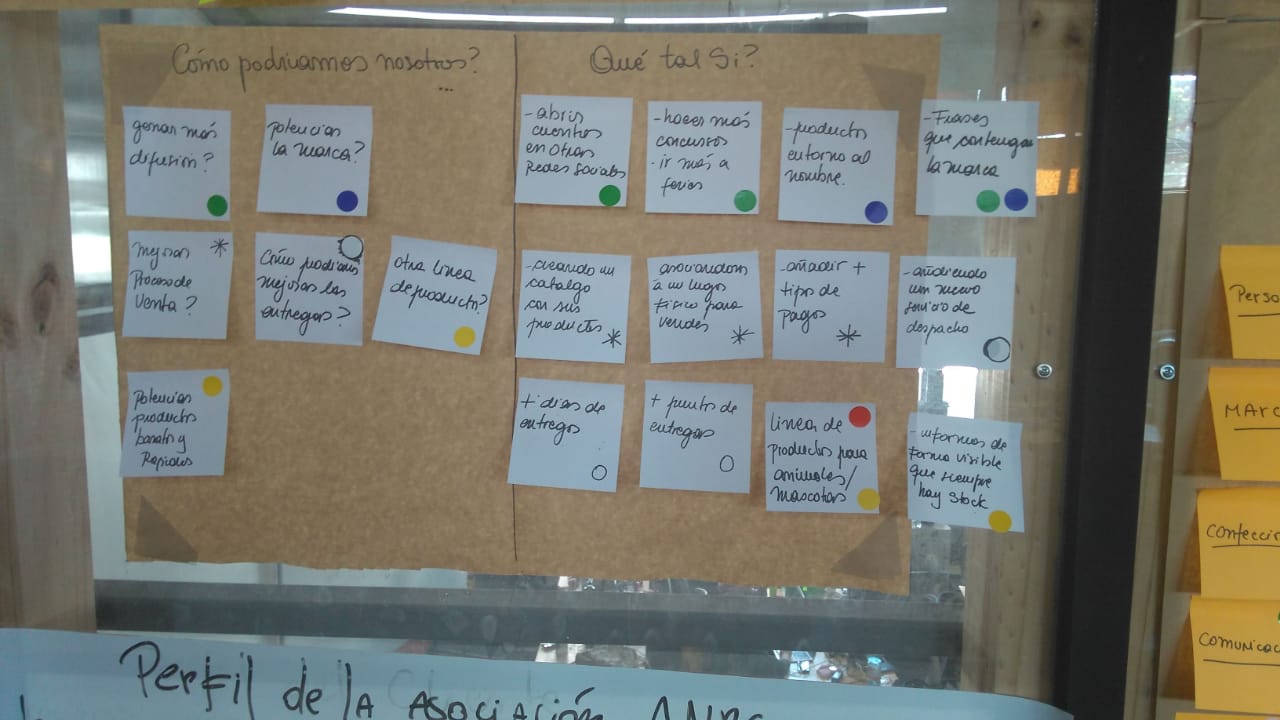 Cómo podriamos nosotros?
...
ganar más
difusión?
potencias
la marca?
mejoras
Proceso de
Venta?
Cómo podrias
mejoras las
entregas?
otra linea
de producto?
Potencias
productos
baratos y
Rapidos
Qué tal Si?
-abrir
cuentas
en otras
Redes sociales
-hacer más
concursos
-ir más a
ferias
-productos
entorno al
nombre.
-Frases
que contengan
la marca
-creando un
catalgo
con sus
productos
asociandons
a un lugar
fisico para
vender
-añadir +
tipos de
pagos
-añadiendo
un nuevo
servicio de
despacho
+ dias de
entregas
+ puntos de
entregas
linea de
productos para
animales/
mascotas
-informar de
forma visible
que siempre
hay stock
Perso
MARC
Confecci
Comunicac
Perfil de la Asociación